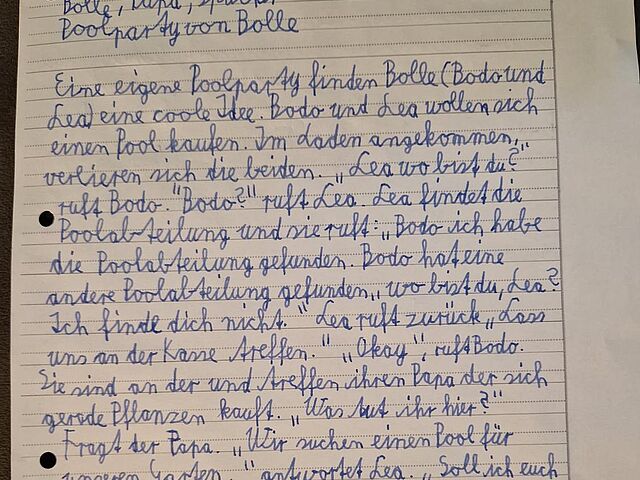 Bolle, Papa,
Poolparty von Bolle
Eine eigene Poolparty finden Bolle (Bodo und
Lea) eine coole Idee. Bodo und Lea wollen sich
einen Pool kaufen. Im Laden angekommen,
verlieren sich die beiden. „Lea wo bist du?"
ruft Bodo. "Bodo?" ruft Lea. Lea findet die
Poolabteilung und sie ruft: „Bodo ich habe
die Poolabteilung gefunden. Bodo hat eine
andere Poolabteilung gefunden„ wo bist du, Lea?
Ich finde dich nicht." Lea ruft zurück „Lass
uns an der Kasse treffen." „Okay", ruft Bodo.
Sie sind an der und treffen ihren Papa der sich
gerade Pflanzen kauft. „Was tut ihr hier?"
Fragt der Papa. „Wir suchen einen Pool für
unseren Garten." antwortet Lea. „Soll ich euch